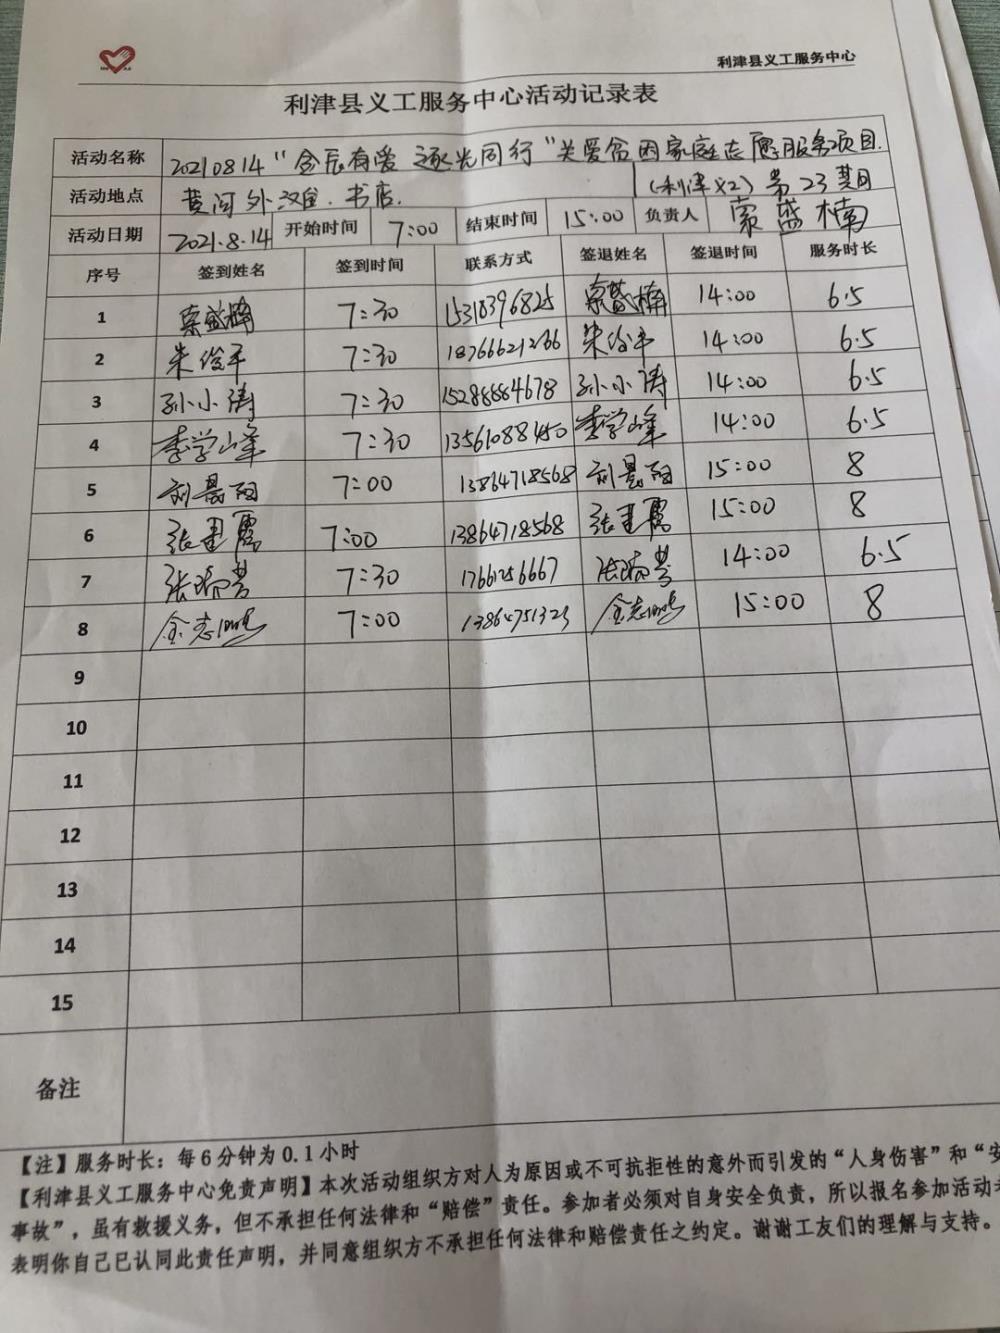 利津县义工服务中心
利津县义工服务中心活动记录表
活动名称 20210814“念辰有爱 逐光同行”关爱贫困家庭志愿服务项目.
(利津义工) 第23期
活动地点 黄河外滩. 书店.
活动日期 2021.8.14 开始时间 7:00 结束时间 15:00 负责人 盛楠
序号 签到姓名 签到时间 联系方式 签退姓名 签退时间 服务时长
1 盛楠 7:30 15318396825 盛楠 14:00 6.5
2 朱俊平 7:30 18766621266 朱俊平 14:00 6.5
3 孙小涛 7:30 孙小涛 14:00 6.5
4 李学峰 7:30 李学峰 14:00 6.5
5 刘晨阳 7:00 13864718568 刘晨阳 15:00 8
6 张建霞 7:00 13864718568 张建霞 15:00 8
7 张瑞芳 7:30 17661256667 张瑞芳 14:00 6.5
8 金志鹏 7:00 金志鹏 15:00 8
9
10
11
12
13
14
15
备注
【注】服务时长：每6分钟为0.1小时
【利津县义工服务中心免责声明】本次活动组织方对人为原因或不可抗拒性的意外而引发的“人身伤害”和“安
事故”，虽有救援义务，但不承担任何法律和“赔偿”责任。参加者必须对自身安全负责，所以报名参加活动者
表明你自己已认同此责任声明，并同意组织方不承担任何法律和赔偿责任之约定。谢谢工友们的理解与支持。